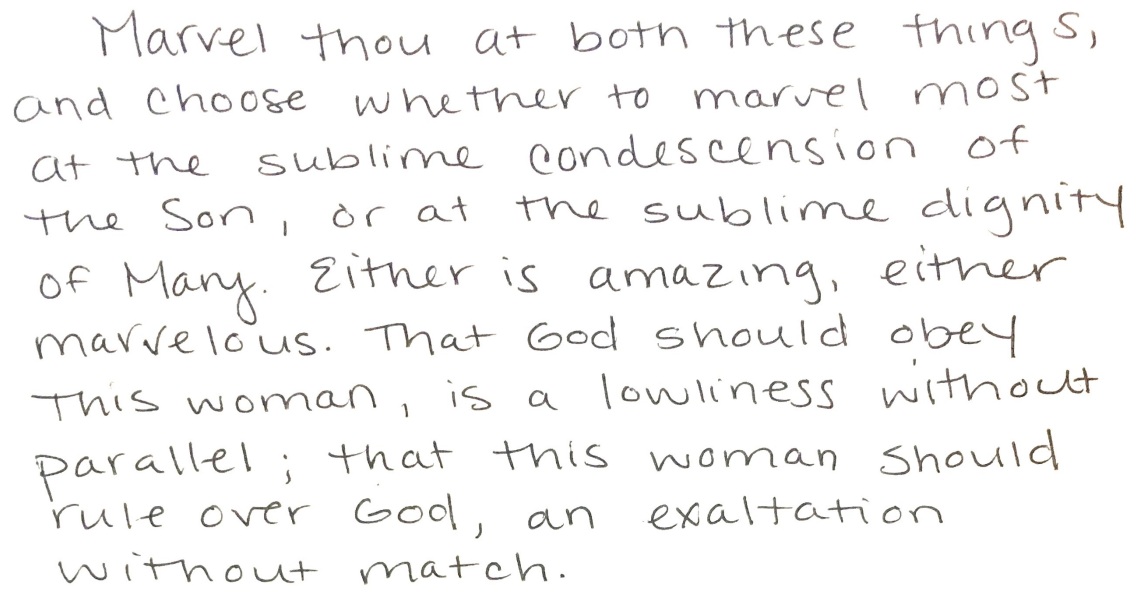 Marvel thou at both these things,
and choose whether to marvel most
at the sublime condescension of
the Son, or at the sublime dignity
of Mary. Either is amazing, either
marvelous. That God should obey
this woman, is a lowliness without
parallel; that this woman should
rule over God, an exaltation
without match.